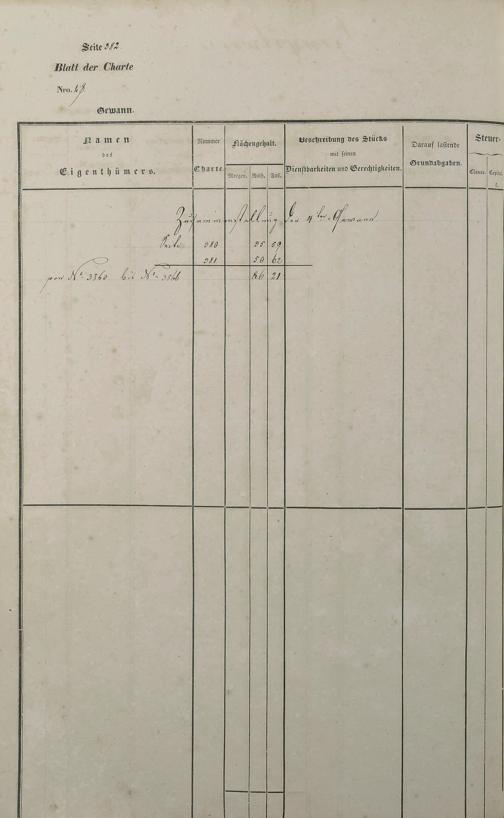 Seite 382
Blatt der Charte
Nro. 48
Gewann.
Namen
des
Eigenthümers.
Nummer
Charte.
Flächengehalt.
Morgen. Ruth. Fuß.
Beschreibung des Stücks
mit seinen
Dienstbarkeiten und Gerechtigkeiten.
Darauf lastende
Grundabgaben.
Steuer-
Classe. Capital
Zusammenstellung der 4ten Gewann
Seite 380 35 59
381 50 62
von No. 3560 bis No. 3566 86 21